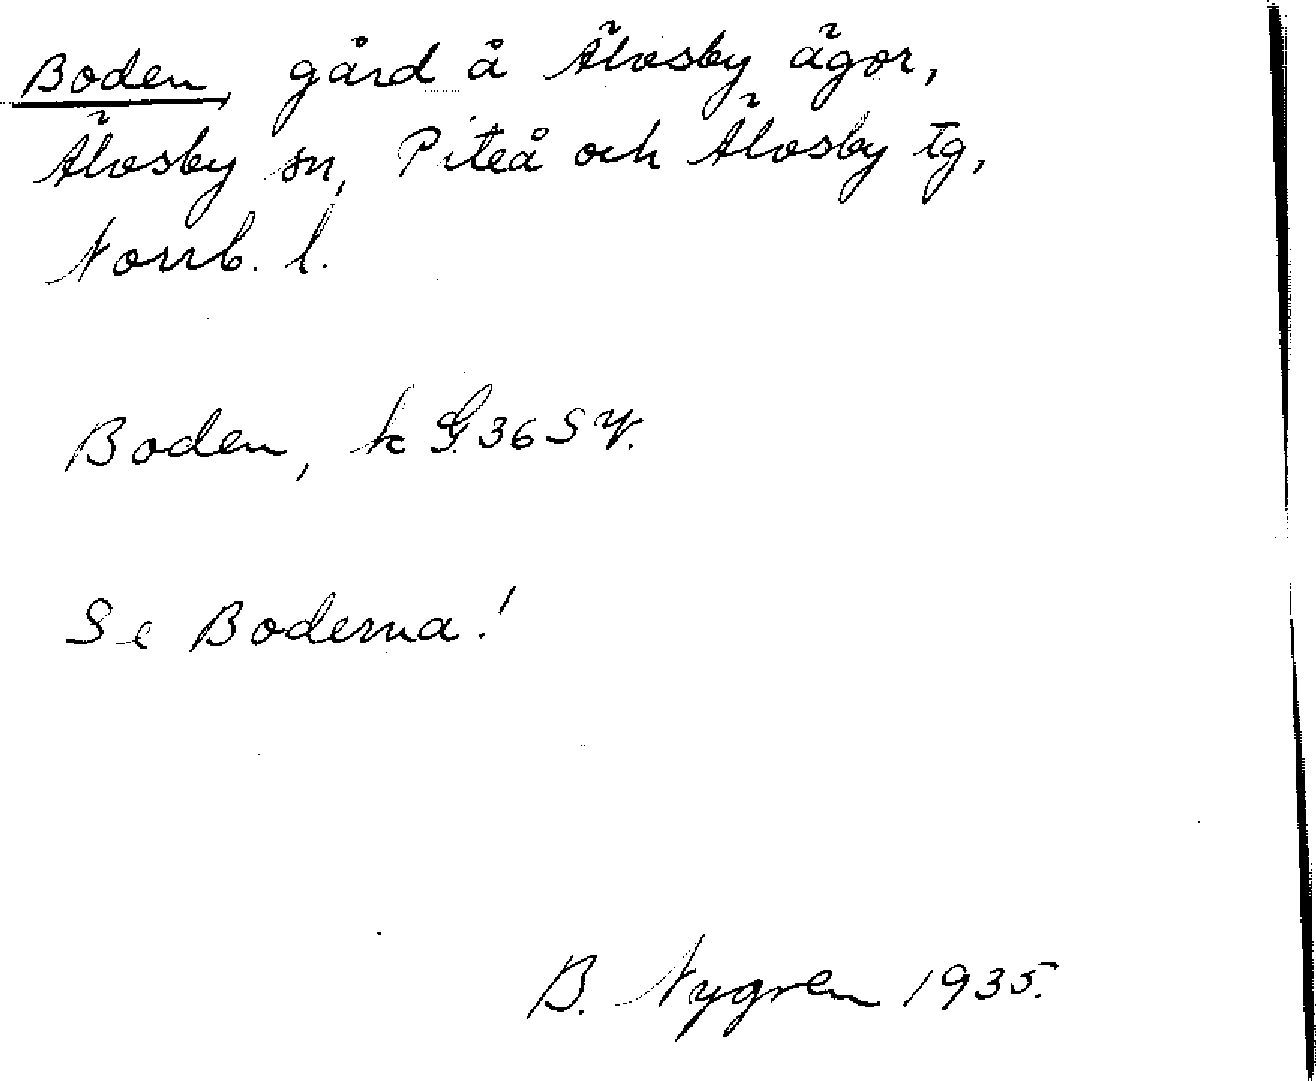 Boden, gård å Älvsby ägor,
Älvsby sn, Piteå och Älvsby tg,
Norrb. l.
Boden, k G. 36 S V.
Se Boderna!
B. Nygren 1935.